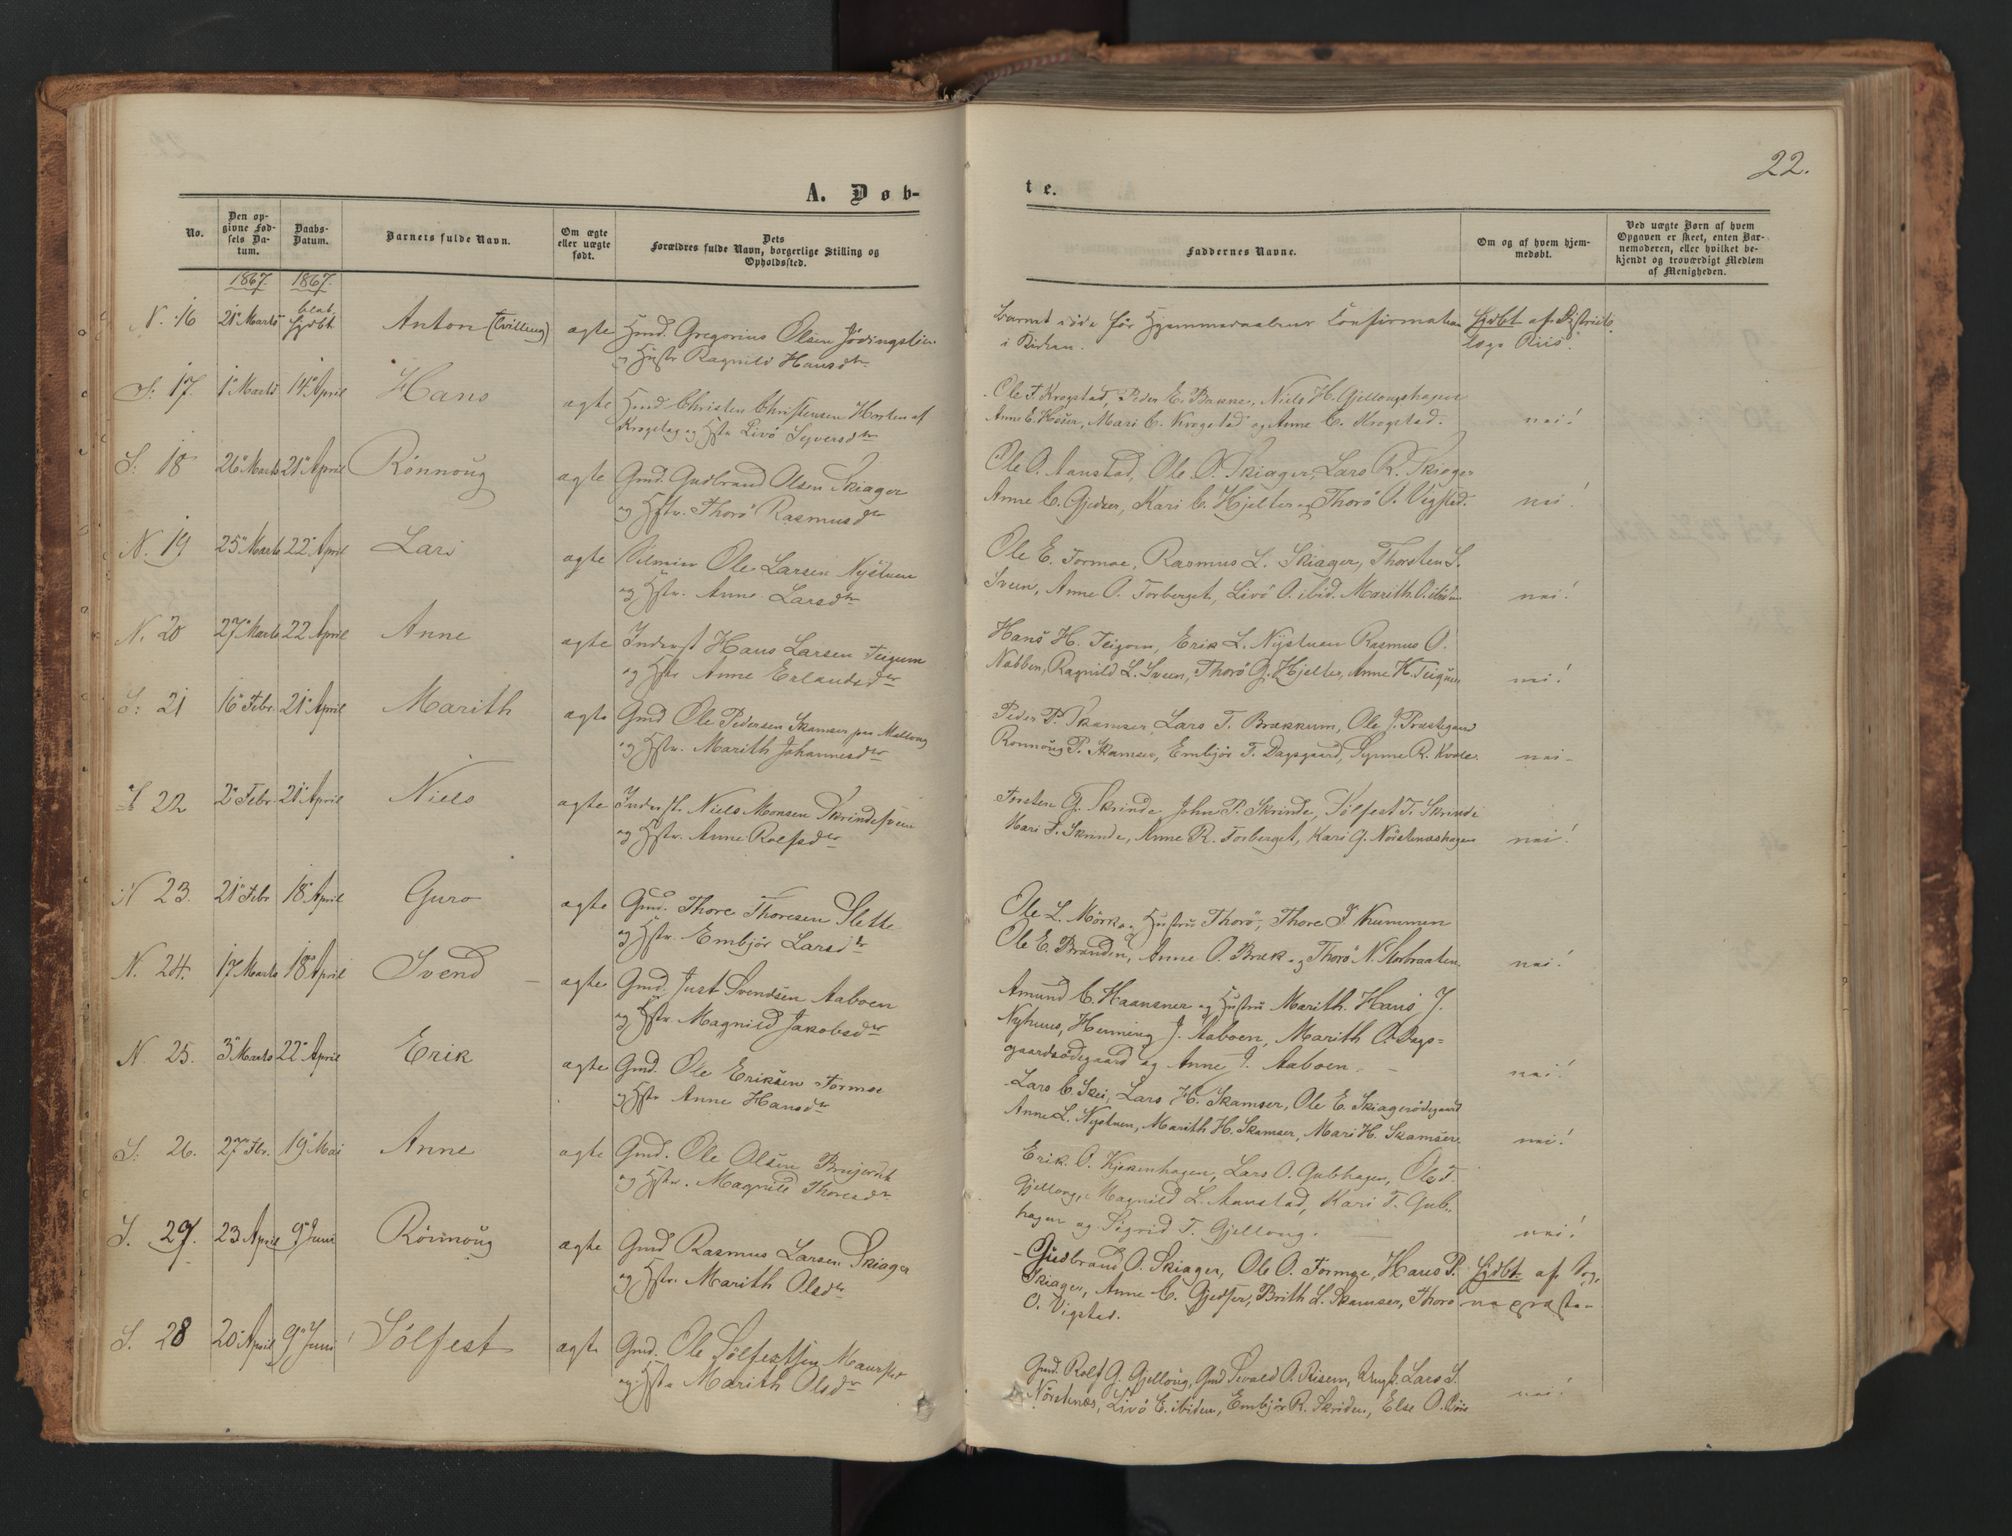 22.
A. Døb-
te.
No.
Den op-
givne Fød-
sels Da-
tum.
Daabs-
Datum.
Barnets fulde Navn.
Om ægte
eller uægte
født.
Dets
Forældres fulde Navn, borgerlige Stilling og
Opholdssted.
Faddernes Navne.
Om og af hvem hjem-
medøbt.
Ved uægte Børn af hvem
Opgaven er skeet, enten Bar-
nemoderen, eller hvilket be-
kjendt og troværdigt Medlem
af Menigheden.
1867. 1867.
N. 16 21 Marts hjdbt Anton (Tvilling) ægte Gmd. Gregorius Olsen
og Hustr Ragnild Hansdtr
Barnet døde før Hjemmedaabens Confirmation
i Kirken.
hjdbt af Districts
læge Riis.
S. 17 1 Marts 14 April Hans ægte Christen Christensen Horten af
Krogstad og Hstr Livö Syversdtr
Ole T. Krogstad, Peder E. Bakke, Niels H. Gjellongshagen
Anne E. Hosar, Mari C. Krogstad og Anne C. Krogstad.
nei!
S. 18 26 Marts 21 April Rönnoug ægte Gmd. Gudbrand Olsen Skiager
og Hstr. Thorö Rasmusdtr
Ole O. Aanstad, Ole O. Skiager, Lars R. Skiager
Anne C. Gjedser, Kari C. Hjelter og Thorö O. Vigsted.
nei!
N. 19 25 Marts 22 April Lars ægte Ole Larsen Nystuen
og Hstr. Anne Larsdtr
Ole E. Formoe, Rasmus L. Skiager, Thorsten S.
Sveen, Anne O. Forberget, Livö O. ibid. Marith O. ibidem
nei!
N. 20 27 Marts 22 April Anne ægte Inderst Hans Larsen Teigum
og Hstr Anne Erlandsdtr
Hans H. Teigom, Erik L. Nystuen Rasmus O.
Nabben, Ragnild L. Sveen, Thorö G. Hjelter, Anne H. Teigum
nei!
S. 21 16 Febr. 21 April Marith ægte Gmd Ole Pedersen Skamser paa Mellong
og Hstr. Marith Johannesdtr
Peder P. Skamser, Lars T. Brækkum, Ole J. Præstgaard
Ronnöug P. Skamser, Embjör T. Dagsgaard, Synne R. Kvale.
nei -
S 22 2 Febr. 21 April Niels ægte Inderst. Niels Monsen Skrindesveen
og Hstr. Anne Rolfsdtr
Torsten G. Skrinde, John P. Skrinde, Sölfest T. Skrinde
Mari T. Skrinde, Anne R. Forberget, Kari G. Nörstenæshagen
nei!
N 23. 21 Febr 18 April Guro ægte Gmd. Thore Thoresen Slette
og Hstr. Embjör Larsdtr
Ole L. Mörk og Hustru Thorö, Thore J Kummen
Ole E. Branden, Anne O. Bræk og Thorö N. Storbraaten
nei!
N. 24. 17 Marts 18 April Svend ægte Gmd. Just Svendsen Aaboen
og Hstr Magnild Jakobsdtr
Amund C. Haansner og Hustru Marith. Hans J.
Nyhuus, Henning J. Aaboen, Marith O. Dags-
gaardsödegaard og Anne J. Aaboen.
nei!
N. 25. 3 Marts 22 April Erik ægte Gmd. Ole Eriksen Formoe
og Hstr Anne Hansdtr
Lars C. Skei, Lars H. Skamser, Ole E. Skiagerödegaard
Anne L. Nystuen, Marith H. Skamser, Mari H. Skamser.
nei!
S. 26. 27 Fbr. 19 Mai Anne ægte Gmd. Ole Olsen
og Hstr. Magnild Thoresdtr
Erik O. Kjekenhagen, Lars O. Gubhagen, Ole T.
Gjellong, Magnild L. Aanstad, Kari T. Gub-
hagen og Sigrid T. Gjellong.
nei!
S. 27. 23 April 9 Juni Rönnoug ægte Gmd Rasmus Larsen Skiager
og Hstr. Marith Olsdtr
Gudbrand O. Skiager, Ole O. Formoe, Hans P.
Skiager, Anne C. Gjedser, Brith L. Skamser, Thorö
O. Vigstad.
hjdbt af
S. 28 20 April 9 Juni Sölfest ægte Gmd. Ole Sölfestsen
og Hstr Marith Olsdtr
Gmd. Rolf G. Gjellong, Gmd Sevald O. Risem, Lars S.
Nörstenæs, Livö E. ibidem, Embjör R. Skriden, Else O.
nei!